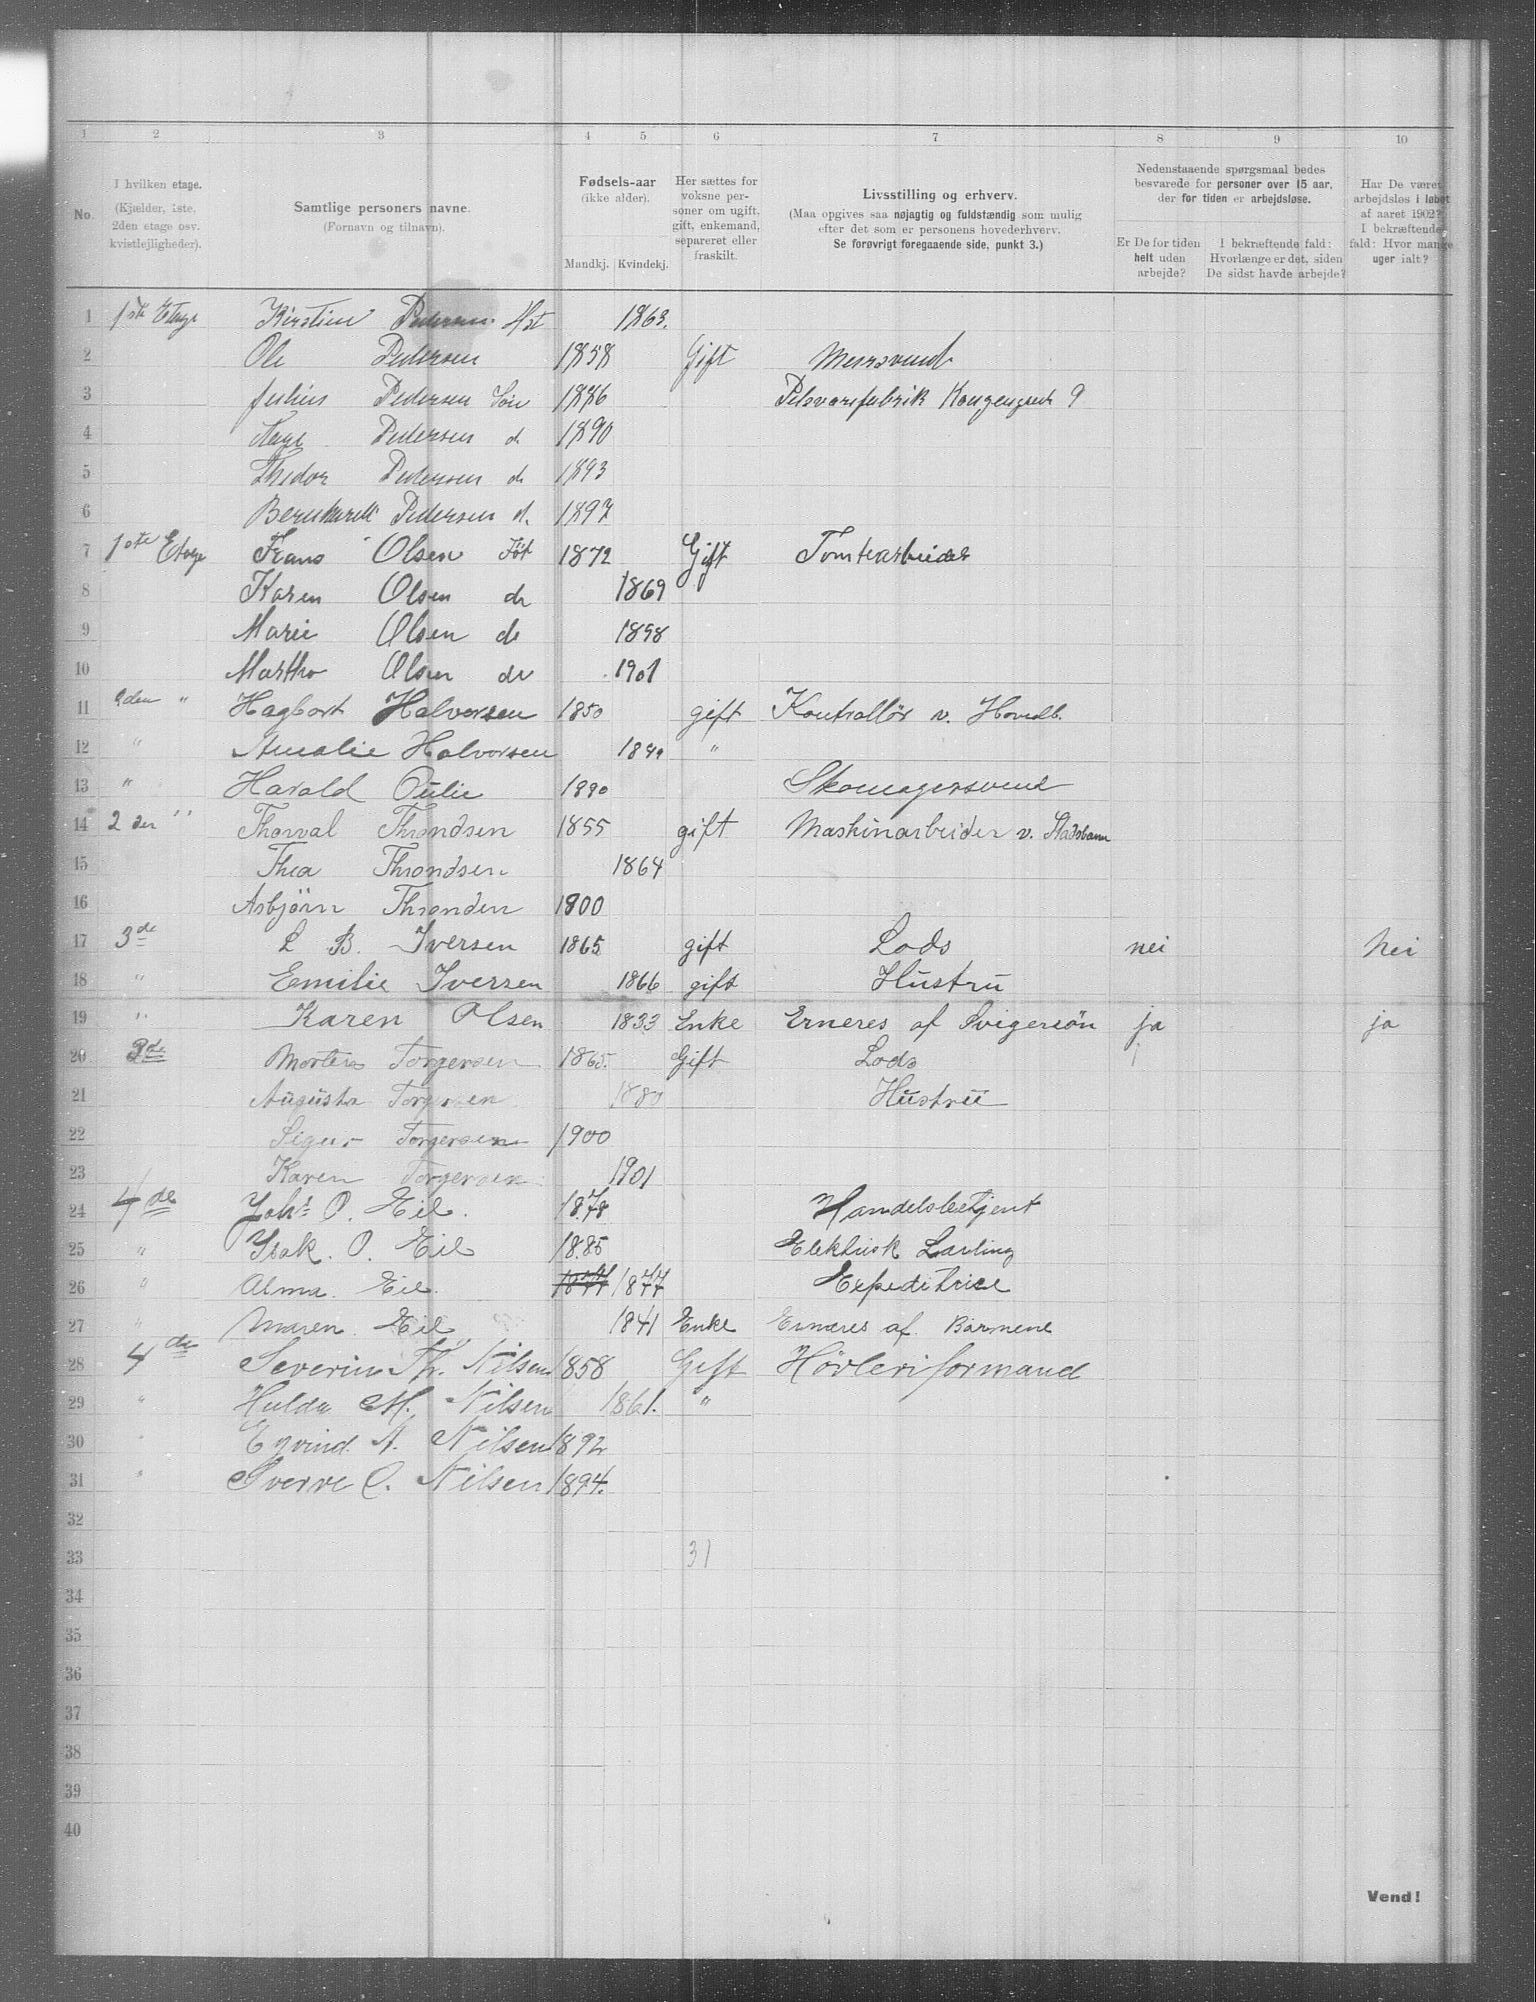 1 2 3 4 5 6 7 8 9 10
No.
I hvilken etage.
(Kjælder, 1ste.
2den etage osv.
kvistlejligheder).
Samtlige personers navne.
(Fornavn og tilnavn).
Fødsels-aar
(ikke alder).
Mandkj. Kvindekj.
Her sættes for
voksne per-
soner om ugift,
gift, enkemand,
separeret eller
fraskilt.
Livsstilling og erhverv.
(Maa opgives saa nøjagtig og fuldstændig som mulig
efter det som er personens hovederhverv.
Se forøvrigt foregaaende side, punkt 3.)
Nedenstaaende spørgsmaal bedes
besvarede for personer over 15 aar,
der for tiden er arbejdsløse.
Er De for tiden
helt uden
arbejde?
I bekræftende fald:
Hvorlænge er det, siden
De sidst havde arbejde?
Har De været
arbejdsløs i løbet
af aaret 1902?
I bekræftende
fald: Hvor mange
uger ialt?
1 1ste Etage Kirstine Pedersen Hst 1863.
2 Ole Pedersen 1858 Gift Mursvend
3 Julius Pedersen Søn 1886 Pelsvarefabrik Kongensgade 9
4 Aage Pedersen do 1890
5 Thedor Pedersen do 1893
6 Bernhardt Pedersen d. 1897
7 1ste Etage Frans Olsen Føt 1872 Gift Tomtearbeider
8 Karen Olsen do 1869
9 Marie Olsen do 1898
10 Martha Olsen do 1901
11 2den " Hagbart Halvorsen 1850 gift Kontrollør v. Hovedb.
12 " Amalie Halvorsen "
13 " Harald Oulie 1890 Skomagersvend
14 2der " Thorval Throndsen 1855 gift Maskinarbeider v. Stadsbane
15 Thea Throndsen 1864
16 Asbjörn Thronden 1900
17 3de L B. Iversen 1865 gift Lods nei Nei
18 " Emilie Iversen 1866 gift Hustru
19 " Karen Olsen 1833 Enke Erneres af Svigersön ja ja
20 3de Morten Torgersen 1865. Gift Lods
21 Augusta Torgersen 1880 Hustru
22 Sigur Torgersen 1900
23 Karen Torgersen 1901
24 4de Johs O. Eil. 1878 Handelsbetjent
25 " Isak. O. Eil 1885 Elektrisk Lærling
26 " Alma. Eil. 1877 1877 Expeditrice
27 " Maren Eil 1841 Enke Ernæres af Barmene
28 4de Severin Th. Nilsen 1858 Gift Hövleriformand
29 " Hulda M. Nilsen 1861. "
30 " Eyvind A. Nilsen 1892
31 " Sverre O. Nilsen 1894.
32
33 31
34
35
36
37
38
39
40
Vend!